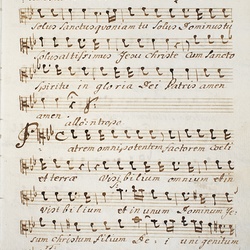 Solus Sanctus quoniam tu Solus Dominus tu
Solus altissimus Jesu Christe cum Sancto
Spiritu in gloria Dei Patris amen
amen
Patrem omnipotentem factorem Coeli
et terræ Visibilium omnium et in
Visibilium et in unum Dominum Je
sum Christum filium De i uni genitum